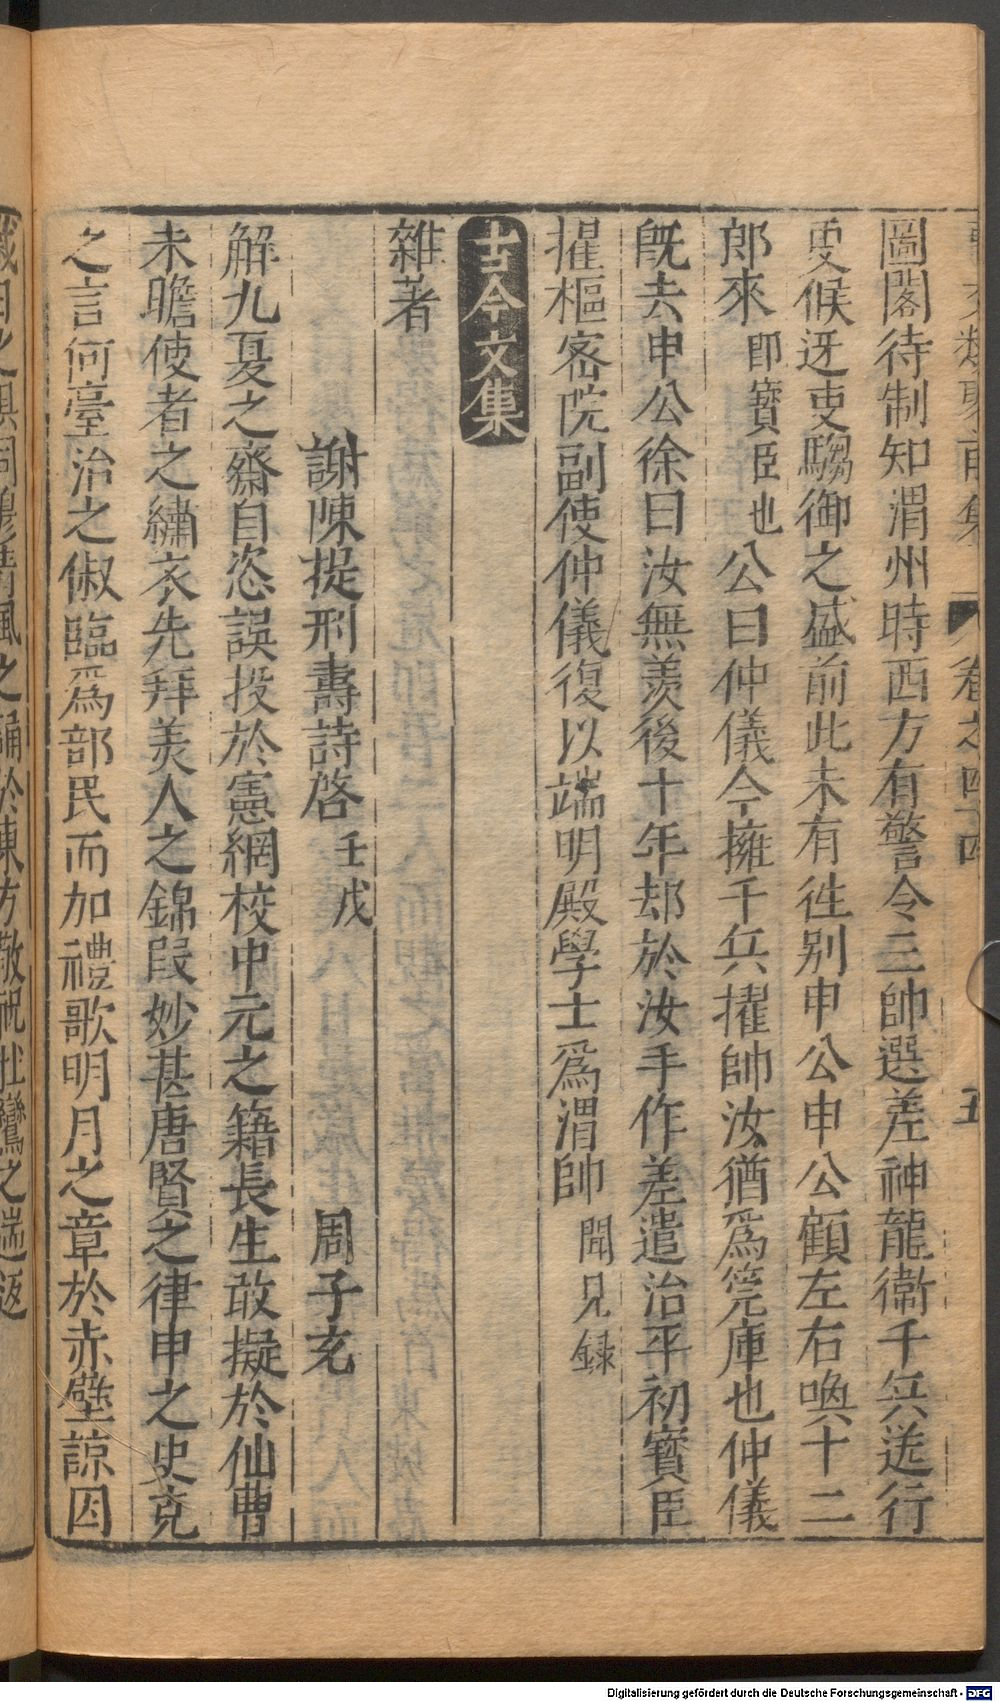 卷之四十四
五
圖閣待制知渭州時西方有警令三帥選差神龍衞千兵送行
叓候迓吏騶御之盛前此未有徃別申公申公顧左右喚十二
郎來即寳臣也公曰仲儀今擁千兵擢帥汝猶爲筦庫也仲儀
旣去申公徐曰汝無羨後十年却於汝手作差遣治平初寳臣
擢樞密院副使仲儀復以端明殿學士爲渭帥聞見録
古今文集
雜著
謝陳提刑壽詩啓壬戌 周子充
解九夏之齋自恣誤投於憲網校中元之籍長生敢擬於仙曹
未瞻使者之繡衣先拜美人之錦段妙甚唐賢之律申之史克
之言何臺治之俶臨爲部民而加禮歌明月之章於赤壁諒因
Digitalisierung gefördert durch die Deutsche Forschungsgemeinschaft - DFG